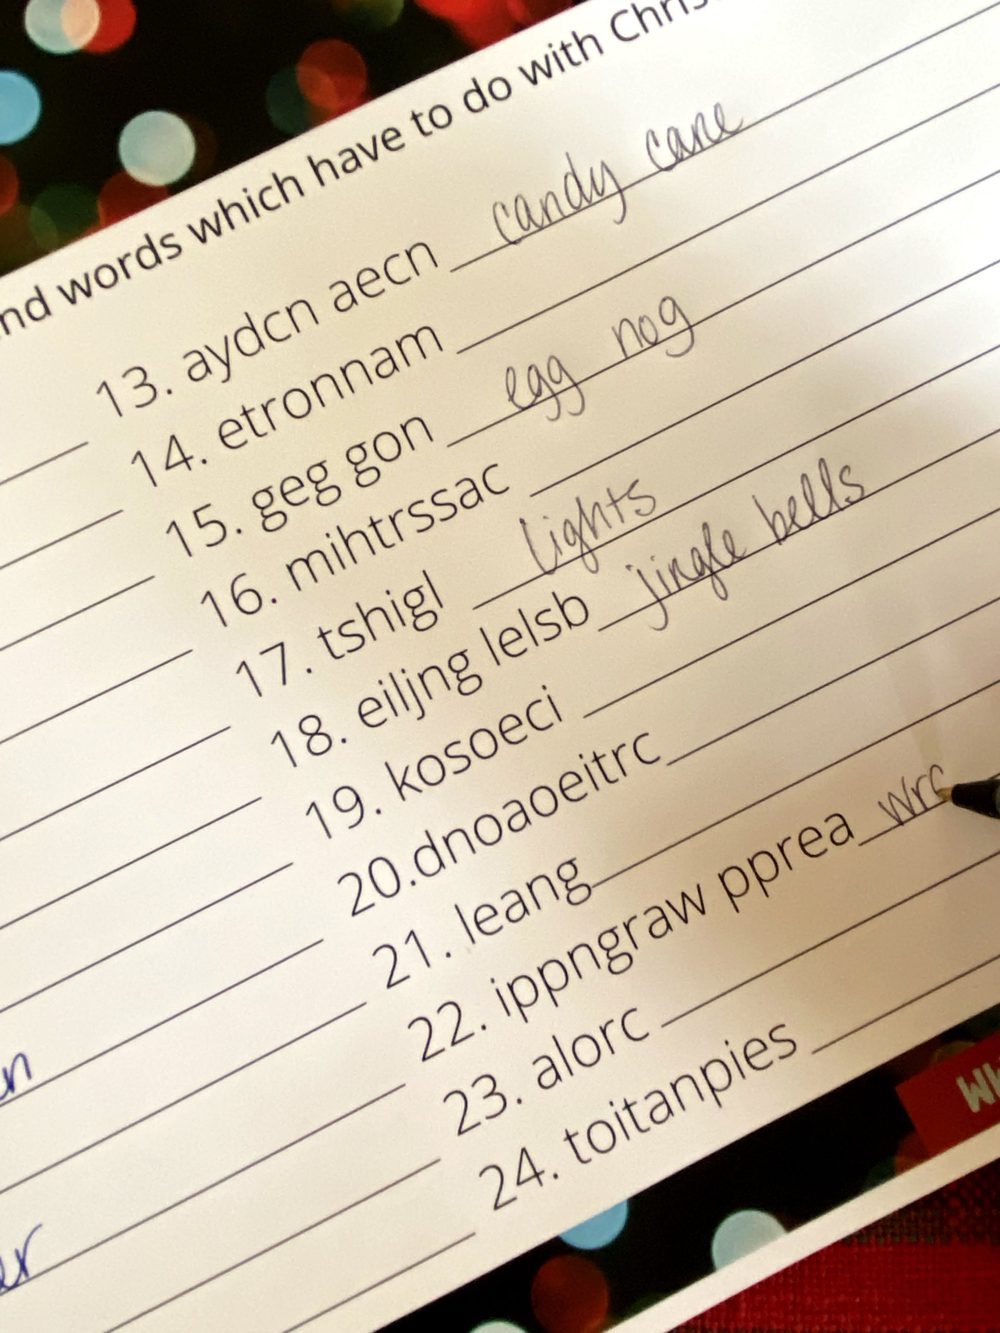 words which have to do with
13. aydcn aecn candy cane
14. etronnam
15. geg gon egg nog
16. mihtrssac
17. tshigl lights
18. eiljng lelsb jingle bells
19. kosoeci
20.dnoaoeitrc
21. leang
22. ippngraw pprea
23. alorc
24. toitanpies